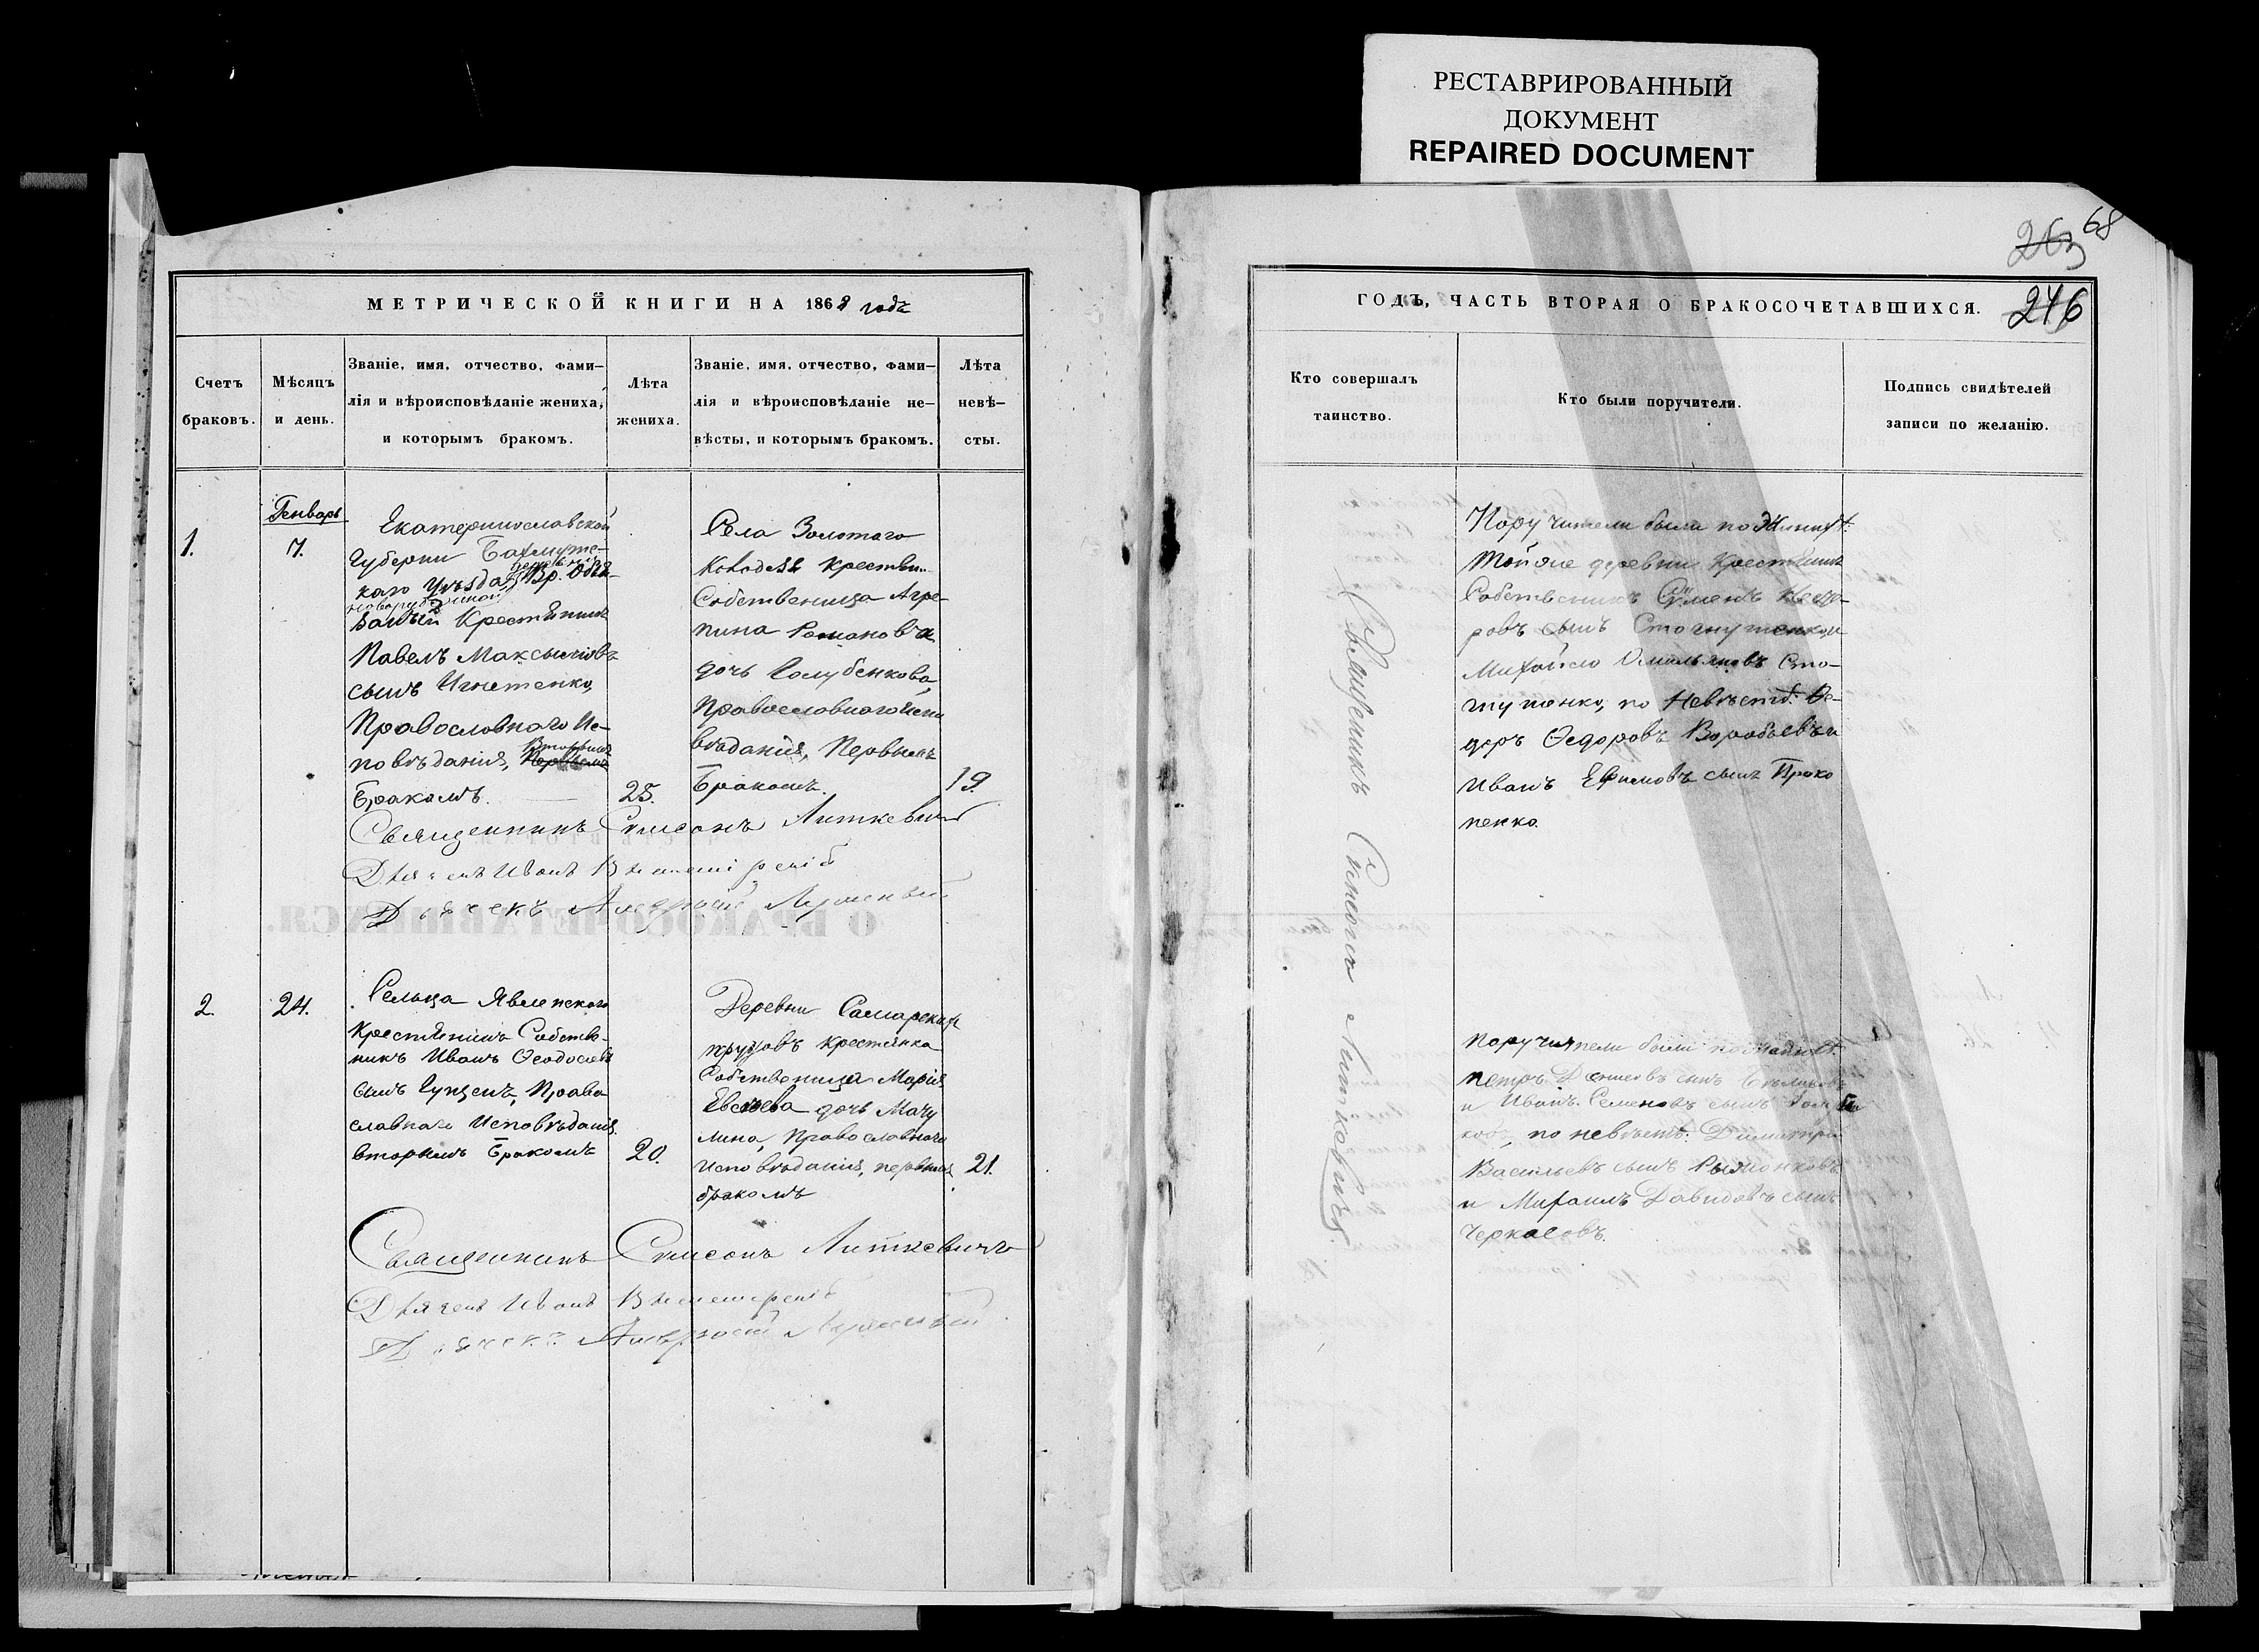 РЕСТАВРИРОВАННЫЙ
ДОКУМЕНТ
REPAIRED DOCUMENT
МЕТРИЧЕСКОЙ КНИГИ НА 1868 года
Счетъ
браковъ.
Мѣсяцъ
и день.
Званіе, имя, отчество, фами-
лія и вѣроисповѣданіе жениха,
и которымъ бракомъ.
Лѣта
жениха.
Званіе, имя, отчество, фами-
лія и вѣроисповѣданіе не-
вѣсты, и которымъ бракомъ.
Лѣта
невѣ-
сты.
1.
Генварь
7.
Екатеринославской
Губерни Бахмутс-
каго Уѣзда Вр. Обяз-
занный Крестянинъ
Павелъ Максимовъ
сынъ Игнатенко,
Православного Ис-
повѣданія, Вторымъ
Бракомъ.
25.
Села Золотаго
Колодезя Крестьян.
Собственица Агре-
пина Романова
дочь Голубенкова,
Православнаго Испо
вѣданія, Первымъ
Бракомъ.
19.
Священникъ Симеонъ Литкевичъ
Діяконъ Иванъ
Дьячекъ
2.
24.
Сельца Явленского
Крестянинъ Собстве-
никъ Иванъ Феодосіевъ
сынъ Гунценъ, Право
славнаго Исповѣданія
вторымъ Бракомъ
20.
Деревни Самарскихъ
прудовъ Крестянка
Собственица Марія
Евсеева дочь Мачу
лина, Православнаго
Исповѣданія, первымъ
бракомъ
21.
Священникъ Симеонъ Литкевичъ
Діяконъ Иванъ
263 68
246
ГОДЪ, ЧАСТЬ ВТОРАЯ О БРАКОСОЧЕТАВШИХСЯ.
Кто совершалъ
таинство.
Кто были поручители.
Подпись свидѣтелей
записи по желанію.
Священникъ Симеонъ Литкевичъ
Поручители были по Жениху:
Тойже деревни Крестянинъ
Собственикъ Семенъ Недо-
ровъ сынъ Стогнутенко и
Михайло Омельяновъ Сто-
гнутенко, по Невѣстѣ: Фе-
доръ Федоровъ Воробьевъ и
Иванъ Ефимовъ сынъ Проко
пенко.
Поручители были по Жениху:
Петръ сынъ
и Иванъ Семеновъ сынъ
по невѣстѣ: Димитрій
Васильевъ сынъ
и Михаилъ Давидовъ сынъ
Черкасовъ.